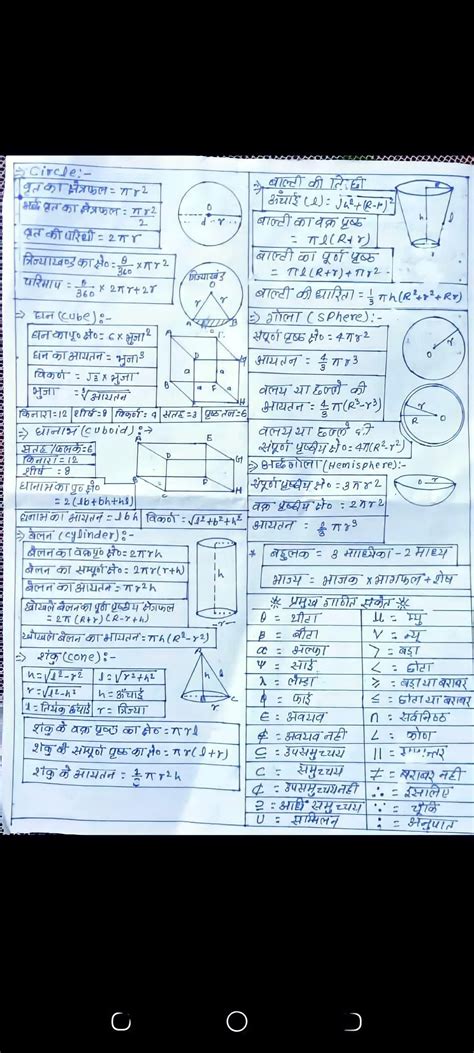 ⇒ Circle:-
वृत का क्षेत्रफल = πr²
अर्द्ध वृत का क्षेत्रफल = πr²/2
वृत की परिधि = 2πr
त्रिज्याखण्ड का क्षे० = θ/360 × πr²
परिमाप = θ/360 × 2πr+2r
त्रिज्याखंड
⇒ घन (Cube):-
घन का पृ० क्षे० = 6 × भुजा²
घन का आयतन = भुजा³
विकर्ण = √3 × भुजा
भुजा = ∛आयतन
किनारा=12 शीर्ष=8 विकर्ण=4 सतह=3 पृष्ठतल=6
⇒ घनाभ (Cuboid):-
सतह/फलक=6
किनारा=12
शीर्ष = 8
घनाभ का पृ० क्षे०
= 2(lb+bh+hl)
घनाभ का आयतन = lbh विकर्ण = √l²+b²+h²
⇒ बेलन (Cylinder):-
बेलन का वक्र पृ० क्षे० = 2πrh
बेलन का सम्पूर्ण पृ० क्षे० = 2πr(r+h)
बेलन का आयतन = πr²h
खोखले बेलन का पूर्ण पृष्ठीय क्षेत्रफल
= 2π(R+r)(R-r+h)
खोखले बेलन का आयतन = πh(R²-r²)
⇒ शंकु (Cone):-
h = √l²-r² l = √r²+h²
r = √l²-h² h = ऊँचाई
l = तिर्यक ऊँचाई r = त्रिज्या
शंकु के वक्र पृष्ठ का क्षे० = πrl
शंकु की सम्पूर्ण पृष्ठ का क्षे० = πr(l+r)
शंकु के आयतन = 1/3 πr²h
⇒ बाल्टी की तिरछी
ऊंचाई (l) = √h²+(R-r)²
बाल्टी का वक्र पृष्ठ
= πl(R+r)
बाल्टी का पूर्ण पृष्ठ
= πl(R+r)+πr²
बाल्टी की धारिता = 1/3 πh(R²+r²+Rr)
⇒ गोला (Sphere):-
संपूर्ण पृष्ठ क्षे० = 4πr²
आयतन = 4/3 πr³
वलय या छल्ले की
आयतन = 4/3 π(R³-r³)
वलय या छल्ले की
संपूर्ण पृष्ठीय क्षे० = 4π(R²-r²)
⇒ अर्द्धगोला (Hemisphere):-
संपूर्ण पृष्ठीय क्षे० = 3πr²
वक्र पृष्ठीय क्षे० = 2πr²
आयतन = 2/3 πr³
* बहुलक = 3 माध्यिका - 2 माध्य
भाज्य = भाजक × भागफल + शेष
※ प्रमुख गणित संकेत ※
θ = थीटा μ = म्यु
β = बीटा ν = न्यू
α = अल्फा > = बड़ा
ψ = साई < = छोटा
λ = लैम्डा ≥ = बड़ा या बराबर
ϕ = फाई ≤ = छोटा या बराबर
∈ = अवयव ∩ = सर्वनिष्ठ
∉ = अवयव नही ∠ = कोण
⊆ = उपसमुच्चय || =
⊂ = समुच्चय ≠ = बराबर नही
⊄ = उपसमुच्चय नही ∴ = इसलिए
⊇ = आधि समुच्चय ∵ = चूंकि
∪ = सम्मिलन : = अनुपात